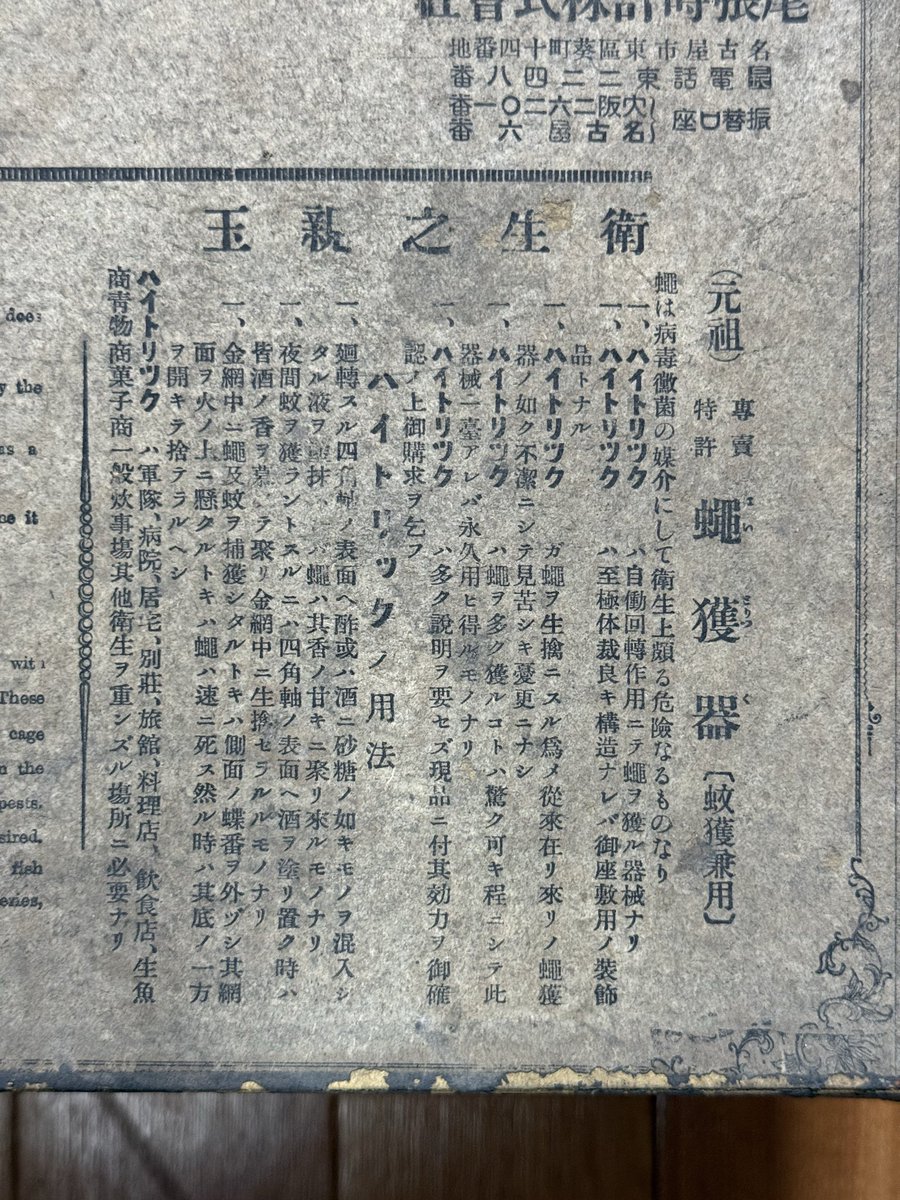 尾張時計株式會社
名古屋市東區葵町十四番地
電話東二二四八番
振替口座
大阪二六二〇一番
名古屋六番
衛生之親玉
(元祖)專賣特許 蠅獲器 [蚊獲兼用]
はいとりつく
蠅は病毒黴菌の媒介にして衛生上頗る危險なるものなり
一、ハイトリック ハ自働回轉作用ニテ蠅ヲ獲ル器械ナリ
一、ハイトリック ハ至極体裁良キ構造ナレバ御座敷用ノ裝飾
品トナル
一、ハイトリック ガ蠅ヲ生擒ニスル爲メ從來在リ來リノ蠅獲
器ノ如ク不潔ニシテ見苦シキ憂更ニナシ
一、ハイトリック ハ蠅ヲ多ク獲ルコトハ驚ク可キ程ニシテ此
器械一臺アレバ永久用ヒ得ルモノナリ
一、ハイトリック ハ多ク說明ヲ要セズ現品ニ付其効力ヲ御確
認ノ上御購求ヲ乞フ
ハイトリックノ用法
一、廻轉スル四角軸ノ表面ヘ酢或ハ酒ニ砂糖ノ如キモノヲ混入シ
タル液ヲ バ蠅ハ其香ノ甘キニ聚リ來ルモノナリ
一、夜間蚊ヲ獲ラントスルニハ四角軸ノ表面ヘ酒ヲ塗リ置ク時ハ
皆酒ノ香ヲ慕 テ聚リ金網中ニ生擒セラルルモノナリ
一、金網中ニ蠅及蚊ヲ捕獲シタルトキハ側面ノ蝶番ヲ外ヅシ其網
面ヲ火ノ上ニ懸クルトキハ蠅ハ速ニ死ス然ル時ハ其底ノ一方
ヲ開キテ捨テラルヘシ
ハイトリック ハ軍隊、病院、居宅、別莊、旅館、料理店、飮食店、生魚
商靑物商菓子商一般炊事塲其他衛生ヲ重ンズル塲所ニ必要ナリ
does
the
as a
it
with
These
cage
the
pests.
sired.
fish